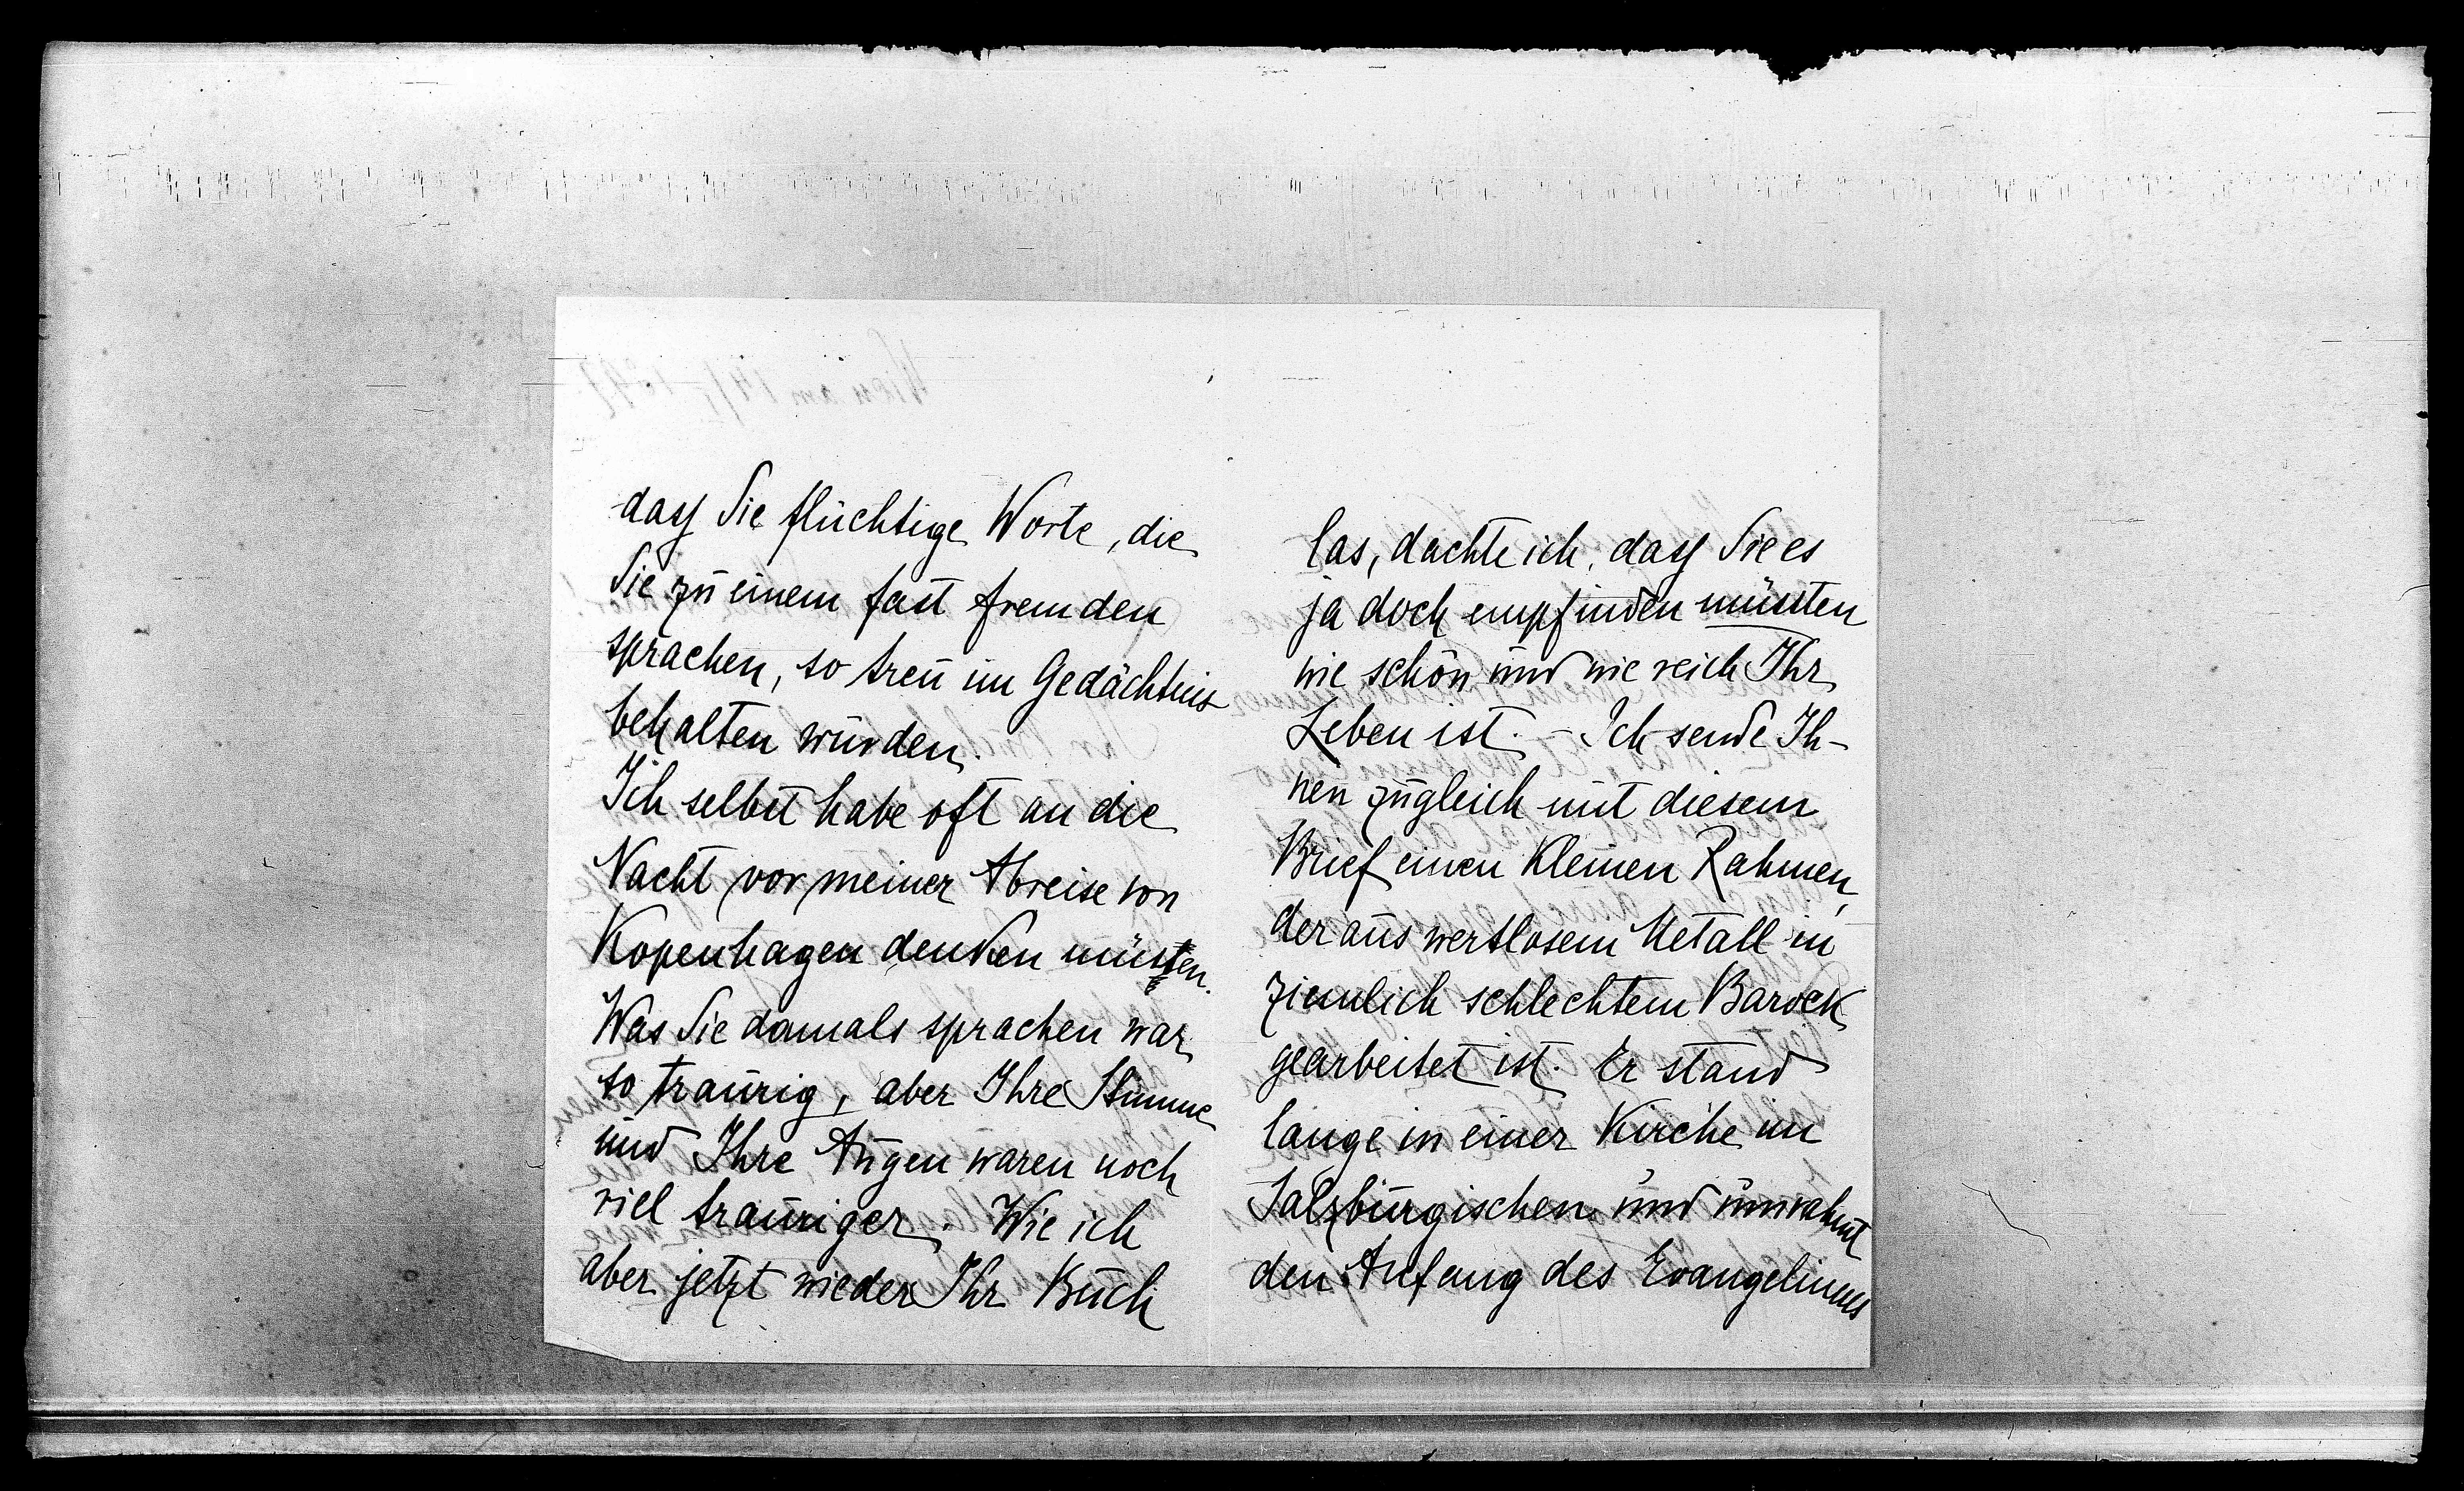 dass Sie flüchtige Worte, die
Sie zu einem fast fremden
sprachen, so treu im Gedächtnis
behalten würden.
Ich selbst habe oft an die
Nacht vor meiner Abreise von
Kopenhagen denken müssen.
Was Sie damals sprachen war
so traurig, aber Ihre Stimme
und Ihre Augen waren noch
viel trauriger. Wie ich
aber jetzt wieder Ihr Buch
las, dachte ich, dass Sie es
ja doch empfinden müssten
wie schön und wie reich Ihr
Leben ist. – Ich sende Ih-
nen zugleich mit diesem
Brief einen kleinen Rahmen,
der aus wertlosem Metall in
ziemlich schlechtem Barock
gearbeitet ist. Er stand
lange in einer Kirche im
Salzburgischen und umrahmt
den Anfang des Evangeliums